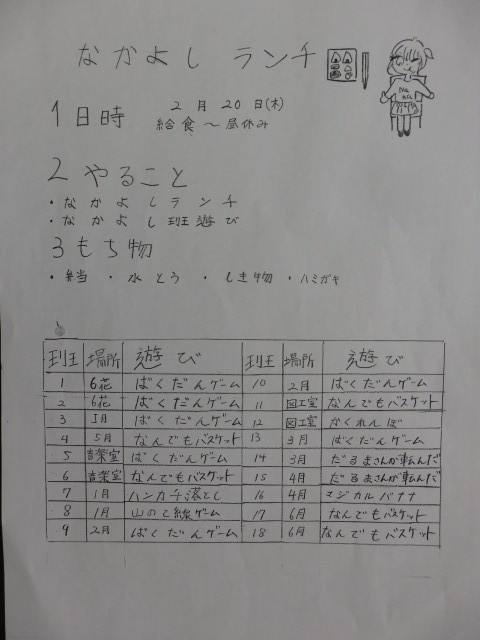 なかよし ランチ
1 日時 2月20日(木)
給食〜昼休み
2 やること
・なかよしランチ
・なかよし班遊び
3 もち物
・弁当 ・水とう ・しき物 ・ハミガキ
班 場所 遊び 班 場所 遊び
1 6花 ばくだんゲーム 10 2月 ばくだんゲーム
2 6花 ばくだんゲーム 11 図工室 なんでもバスケット
3 5月 ばくだんゲーム 12 図工室 かくれんぼ
4 5月 なんでもバスケット 13 3月 ばくだんゲーム
5 音楽室 ばくだんゲーム 14 3月 だるまさんが転んだ
6 音楽室 なんでもバスケット 15 4月 だるまさんが転んだ
7 1月 ハンカチ落とし 16 4月 マジカルバナナ
8 1月 山のて線ゲーム 17 6月 なんでもバスケット
9 2月 ばくだんゲーム 18 6月 なんでもバスケット